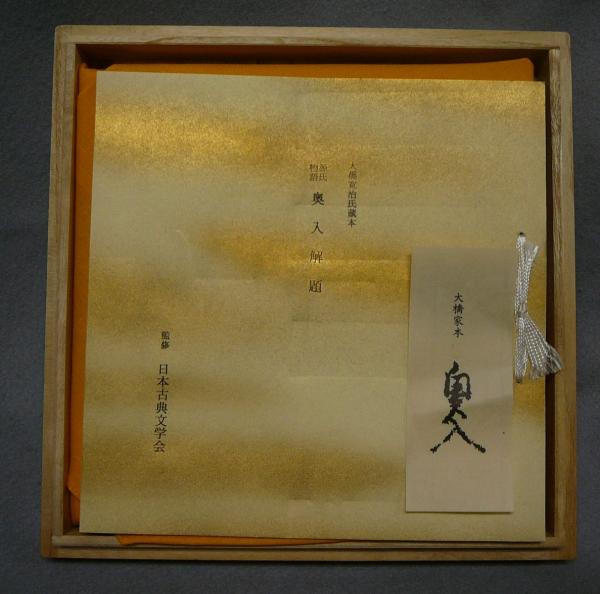 大橋寛治氏蔵本
源氏物語 奥入解題
監修 日本古典文学会
大橋家本
奥入